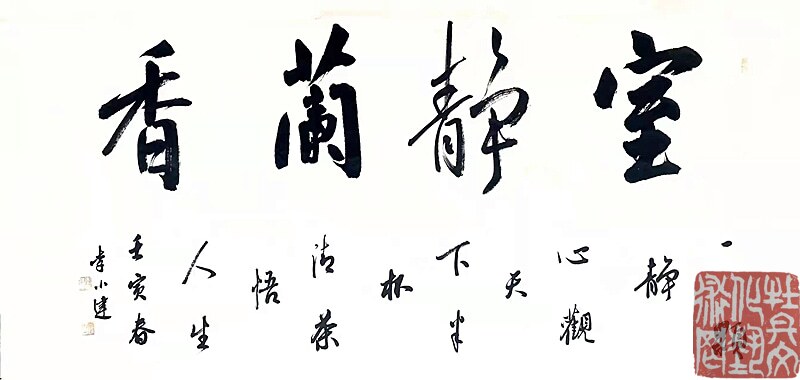 室静蘭香
一顆
静
心觀
天
下半
杯
清茶
悟
人生
壬寅春
李小建